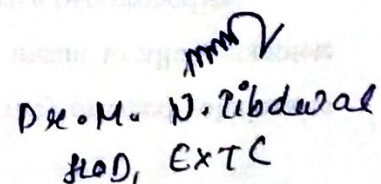 Dr. M. N. Tibdewal
HOD, EXTC